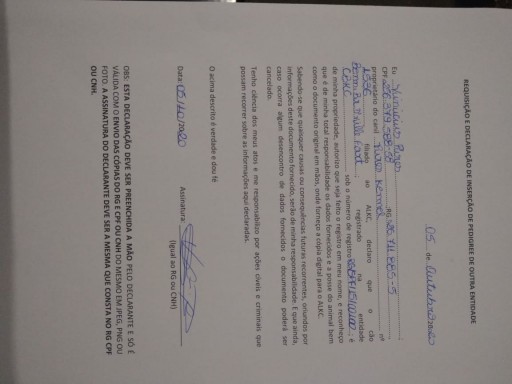 REQUISIÇÃO E DECLARAÇÃO DE INSERÇÃO DE PEDIGREE DE OUTRA ENTIDADE
05 de outubro 2020
Eu
CPF RG
proprietário do canil nº
filiado ao ALKC, declaro que o cão
registrado na entidade
CBKC sob o número de registro é
de minha propriedade, autorizo que seja feito o registro em meu nome, e reconheço
que é de minha total responsabilidade os dados fornecidos e a posse do animal bem
como o documento original em mãos, onde forneço a cópia digital para o ALKC.
Sabendo se que quaisquer causas ou consequências futuras recorrentes, oriundos por
informações deste documento fornecido, serão de minha responsabilidade. E que ainda,
caso ocorra algum desencontro de dados fornecidos o documento poderá ser
cancelado.
Tenho ciência dos meus atos e me responsabilizo por ações cíveis e criminais que
possam recorrer sobre as informações aqui declaradas.
O acima descrito é verdade e dou fé
Data: 05/10/2020 Assinatura:
(Igual ao RG ou CNH)
OBS: ESTA DECLARAÇÃO DEVE SER PREENCHIDA A MÃO PELO DECLARANTE E SÓ É
VÁLIDA COM O ENVIO DAS CÓPIAS DO RG E CPF OU CNH DO MESMO EM JPEG, PNG OU
FOTO. A ASSINATURA DO DECLARANTE DEVE SER A MESMA QUE CONSTA NO RG CPF
OU CNH.